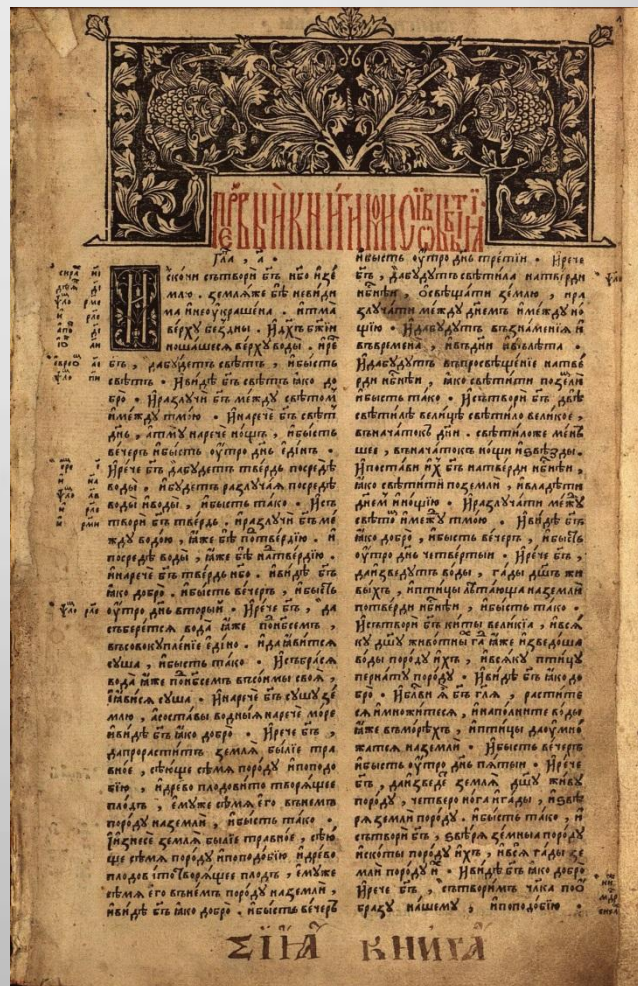 гла , а҃ .
Искочи сътвори бг҃ъ нб҃о и зе
млю . земляже бѣ невиди
ма и неоукрашена . и тма
верху бездны . и дх҃ъ бж҃іи
ношашеся верху воды . и рⷱ҇е
бг҃ъ , да будетъ свѣтъ , и бысть
свѣтъ • И видѣ бг҃ъ свѣтъ ꙗко до
бро • И разлучи бг҃ъ между свѣтом
и между тмою • И нарече бг҃ъ свѣт
днь , а тму нарече нощъ , и бысть
вечеръ и бысть оутро днь единъ •
И рече бг҃ъ да будетъ твердь посредѣ
воды , и будетъ разлучая посредѣ
воды и воды , и бысть тако • И съ
твори бг҃ъ твердь . и разлучи бг҃ъ ме
жду водою , ꙗже бѣ под твердію . и
посредѣ воды , ꙗже бѣ над твердію .
и нарече бг҃ъ твердь нб҃о . и видѣ бг҃ъ
ꙗко добро . и бысть вечеръ , и бысть
оутро днь вторый • И рече бг҃ъ , да
съберется вода ꙗже под нб҃семъ ,
въ совокупленіе едино . и да ꙗвится
суша , и бысть тако • И събрася
вода ꙗже под нб҃семъ въ сонмы своя ,
и ꙗвися суша • И нарече бг҃ъ сушу зе
млю , а съставы водныя нарече море
и видѣ бг҃ъ ꙗко добро • И рече бг҃ъ ,
да прораститъ земля быліе тра
вное , сѣюще сѣмя по роду и по подо
бію , и древо плодовито творящее
плодъ , емуже сѣмя его въ немъ
по роду на земли , и бысть тако •
И изнесе земля быліе травное , сѣю
ще сѣмя по роду и по подобію и древо
плодовито творящее плодъ , емуже
сѣмя его въ немъ по роду на земли ,
и видѣ бг҃ъ ꙗко добро . и бысть вечеръ
и бысть оутро днь третіи • И рече
бг҃ъ , да будутъ свѣтила на тверди
нб҃нѣи , освѣщати землю , и ра
злучати между днемъ и между но
щію • И да будутъ въ знаменія и
въ времена , и въ дни и въ лѣта •
И да будутъ въ просвѣщеніе на тве
рди нб҃нѣи , ꙗко свѣтити по земли
и бысть тако • И сътвори бг҃ъ двѣ
свѣтилѣ велицѣ свѣтило великое ,
въ начатокъ дни . свѣтиложе мень
шее , въ начатокъ нощи и ѕвѣзды .
И постави их бг҃ъ на тверди нб҃нѣи ,
ꙗко свѣтити по земли , и владѣти
днем и нощію • И разлучати между
свѣтом и между тмою • И видѣ бг҃ъ
ꙗко добро , и бысть вечеръ , и бысть
оутро днь четвертыи • И рече бг҃ъ ,
да изведутъ воды , гады дш҃ъ жи
выхъ , и птицы лѣтающа на земли
по тверди нб҃нѣи , и бысть тако •
И сътвори бг҃ъ киты великія , и вся
ку дш҃у животны гад ꙗже изведоша
воды по роду ихъ , и всяку птицу
пернату по роду • И видѣ бг҃ъ ꙗко до
бро • И блви ꙗ бг҃ъ гля , растите
ся и множитеся , и наполните воды
ꙗже въ морѣхъ , и птицы да оумно
жатся на земли • И бысть вечеръ
и бысть оутро днь пятыи • И рече
бг҃ъ , да изведе земля дш҃у живу
по роду , четверо нога и гады , и ѕвѣ
ря земли по роду . и бысть тако , и
сътвори бг҃ъ , ѕвѣря земныа по роду
и скоты по роду ихъ , и вся гады зе
мли по роду и • И видѣ бг҃ъ ꙗко добро
И рече бг҃ъ , сътворимъ чл҃ка по о
бразу нашему , и по подобію •
СІИА КНИГА